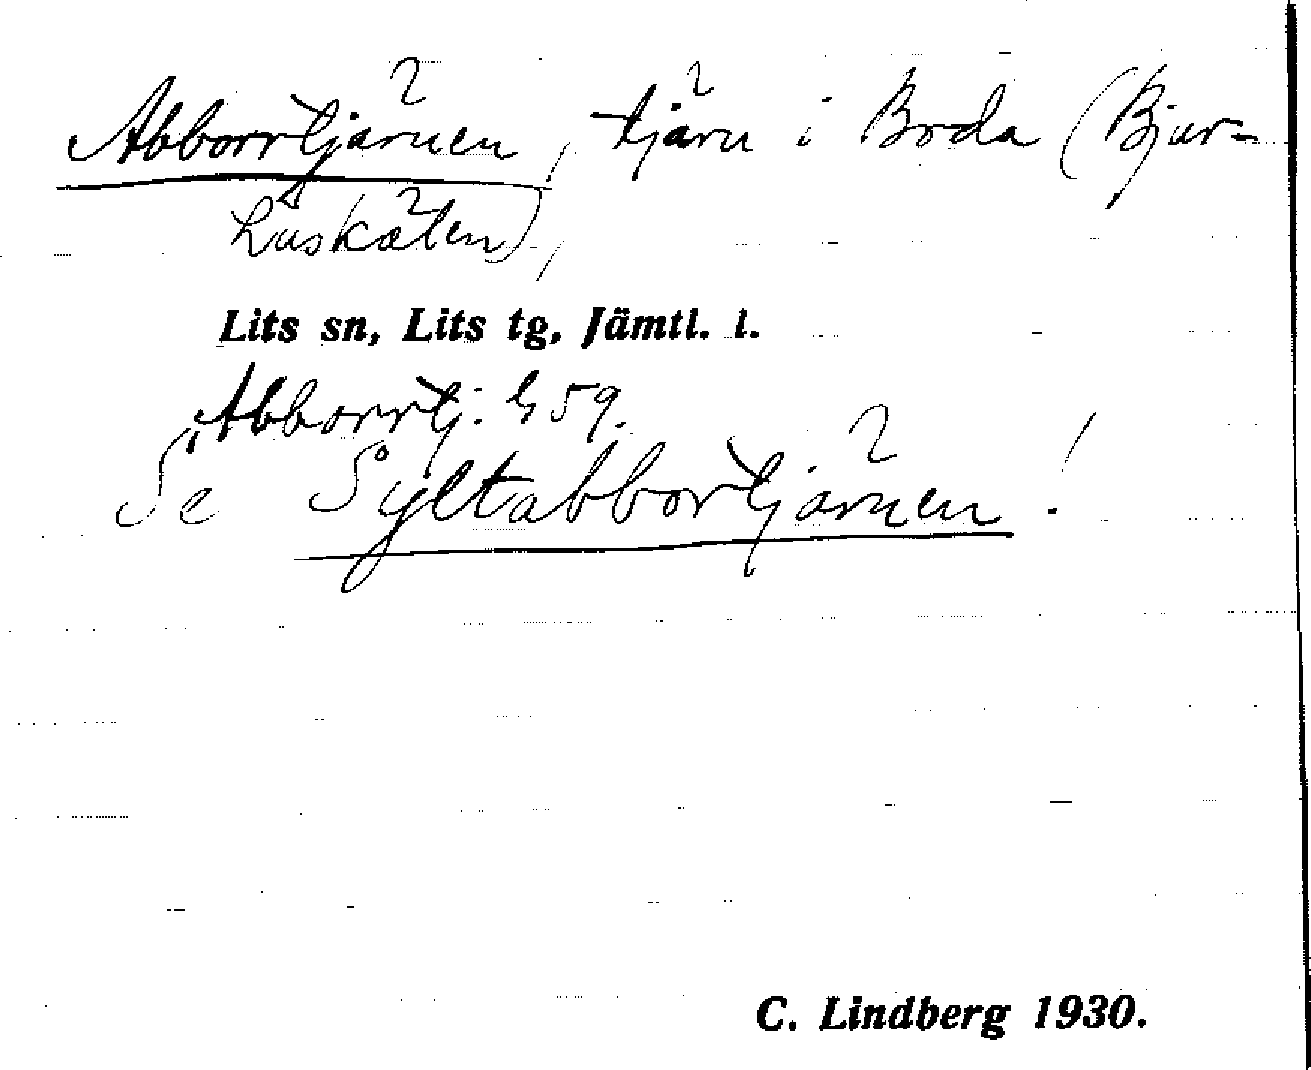 Abborrtjärnen, tjärn i Boda (Bjur-
huskäten),
Lits sn, Lits tg, Jämtl. l.
Abborrtj. G 59.
Se Syltabbortjärnen!
C. Lindberg 1930.